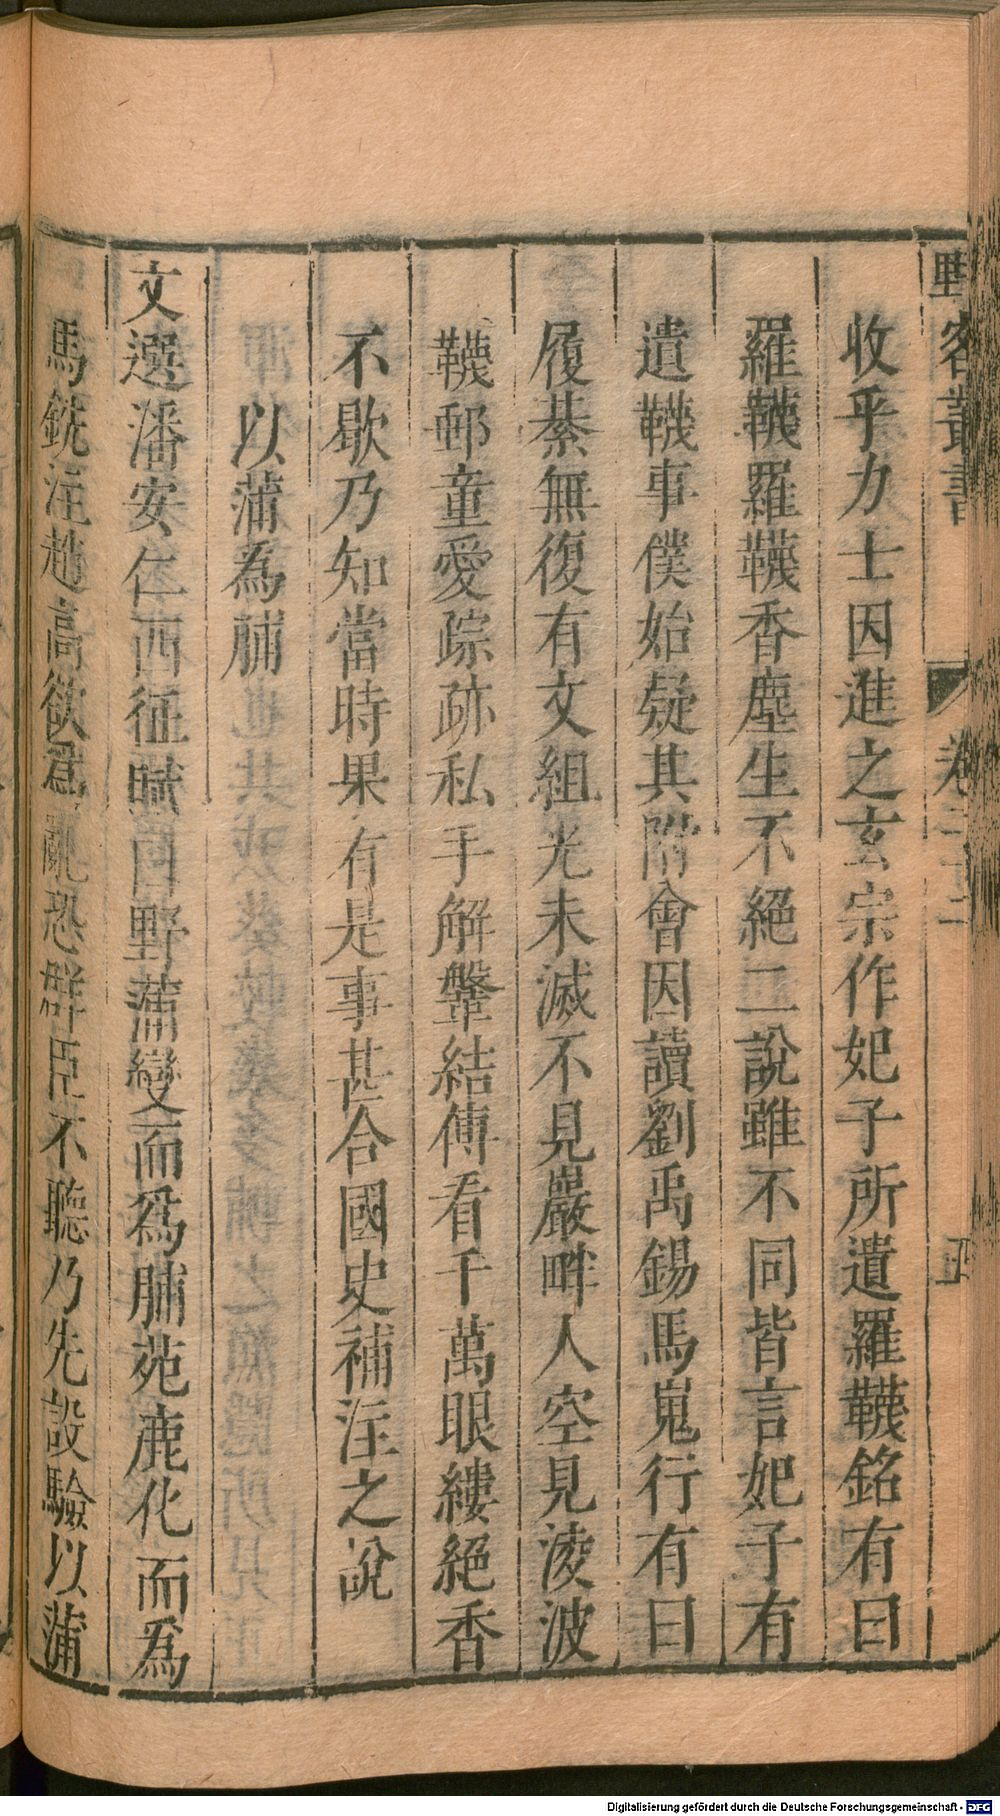 野客叢書 卷二十二 五
收乎力士因進之玄宗作妃子所遺羅韈銘有曰
羅韈羅韈香塵生不絕二說雖不同皆言妃子有
遺韈事僕始疑其附會因讀劉禹錫馬嵬行有曰
履綦無復有文組光未滅不見巖畔人空見淩波
韈郵童愛踪跡私手解鞶結傳看千萬眼縷絕香
不歇乃知當時果有是事甚合國史補注之說
以蒲為脯
文選潘安仁西征賦曰野蒲變而為脯苑鹿化而為
馬銑注趙高欲為亂恐群臣不聽乃先設驗以蒲
Digitalisierung gefördert durch die Deutsche Forschungsgemeinschaft - DFG